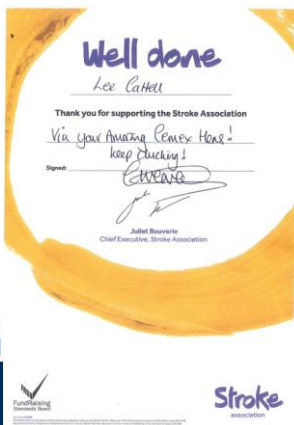 Well done
Lee Cattell
Thank you for supporting the Stroke Association
Via your Amazing Cemex Hens!
keep clucking!
Signed:
Juliet Bouverie
Chief Executive, Stroke Association
FundRaising
Standards Board
Stroke
association